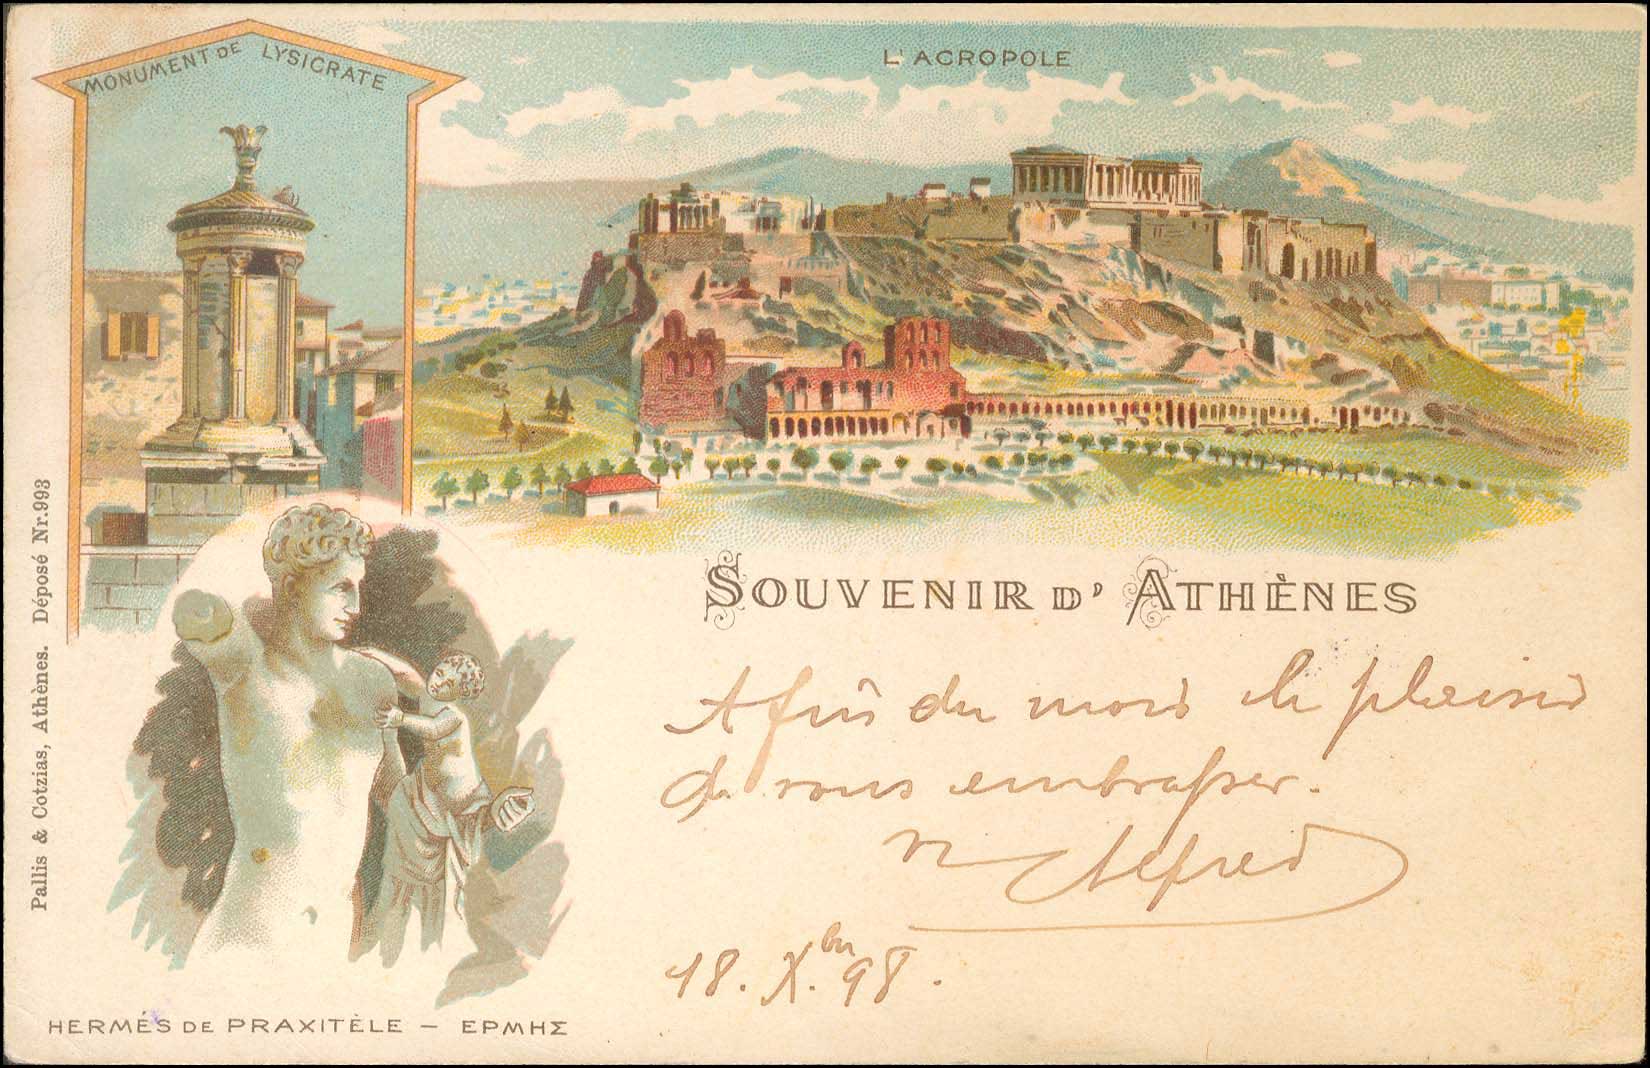 MONUMENT DE LYSICRATE
L'ACROPOLE
SOUVENIR D'ATHÈNES
A fin du mois le plaisir
de vous embrasser.
Alfred
18. Xbre 98.
Pallis & Cotzias, Athènes. Déposé Nr. 993
HERMÉS DE PRAXITÈLE — ΕΡΜΗΣ